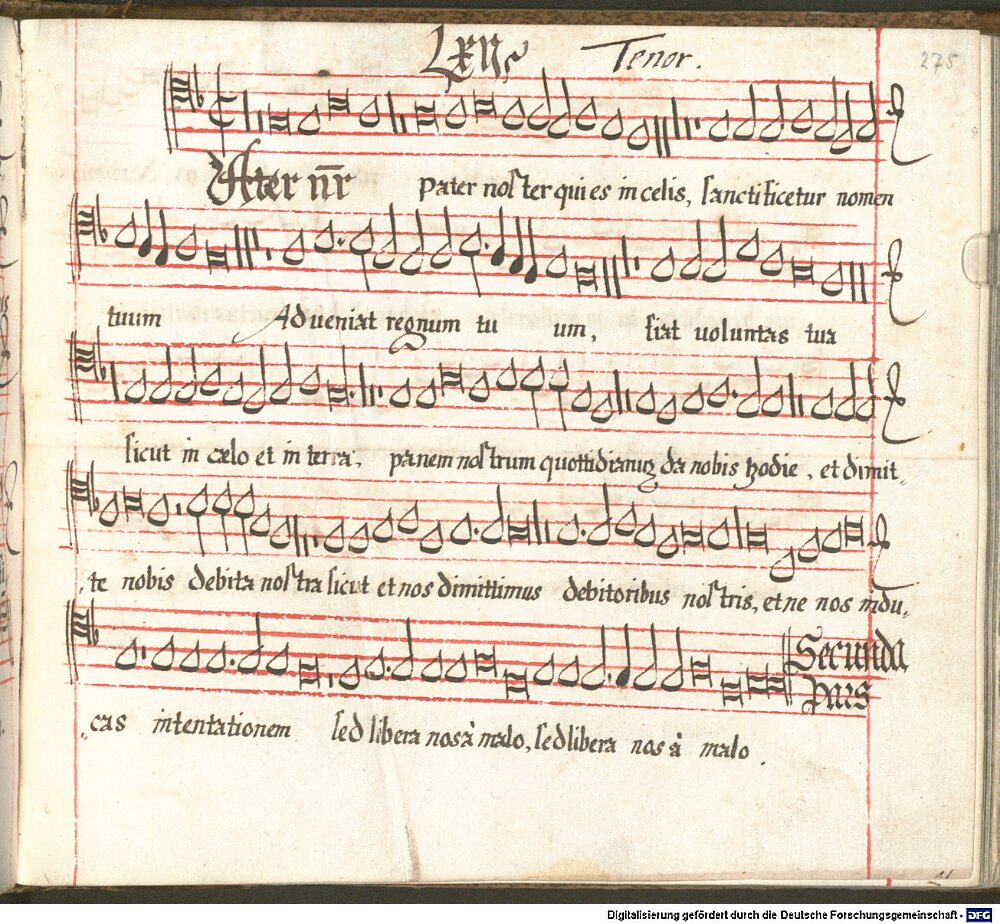 Tenor. 275
Pater nr̄ pater noster qui es in celis, sanctificetur nomen
tuum Adveniat regnum tu um, fiat voluntas tua
sicut in cælo et in terra, panem nostrum quottidianuȝ da nobis hodie, et dimit„
„te nobis debita nostra sicut et nos dimittimus debitoribus nostris, et ne nos indu„
Secunda
Pars
„cas intentationem sed libera nos à malo, sed libera nos à malo.
Digitalisierung gefördert durch die Deutsche Forschungsgemeinschaft - DFG